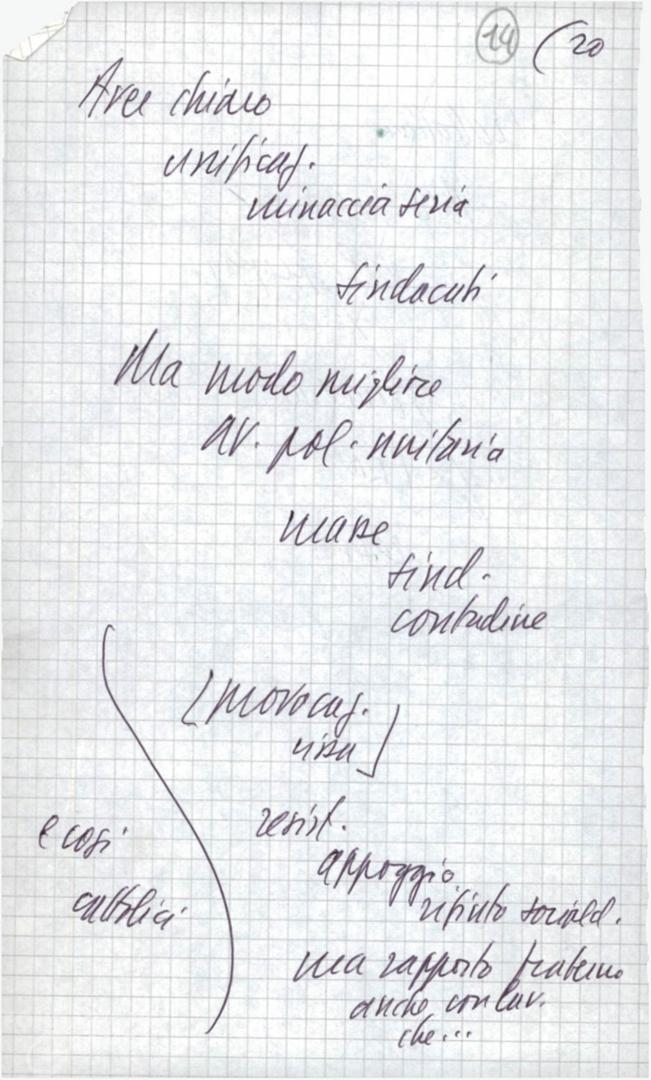 14 (20
Aver chiaro
unificaz.
minaccia seria
sindacati
Ma modo migliore
av. pol. unitaria
masse
sind.
contadine
[provocaz.
rissa]
resist.
appoggio
rifiuto sociald.
ma rapporto fraterno
anche con lav.
che...
e così
cattolici